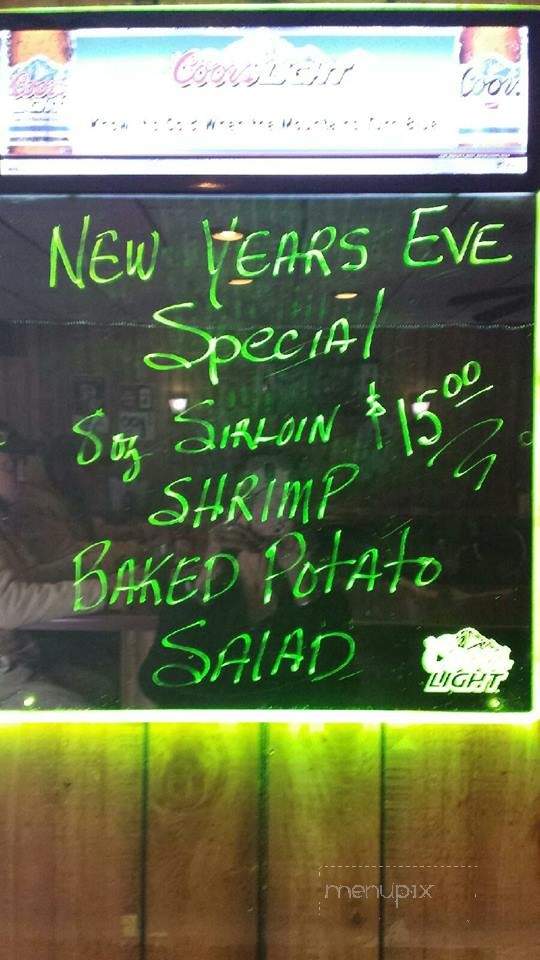 Coors LIGHT
Coors
Coors
Know it's Cold When the Mountains Turn Blue
NEW YEARS EVE
Special
8oz SIRLOIN $15.00
SHRIMP
BAKED POTATO
SALAD
Coors
LIGHT
menupix